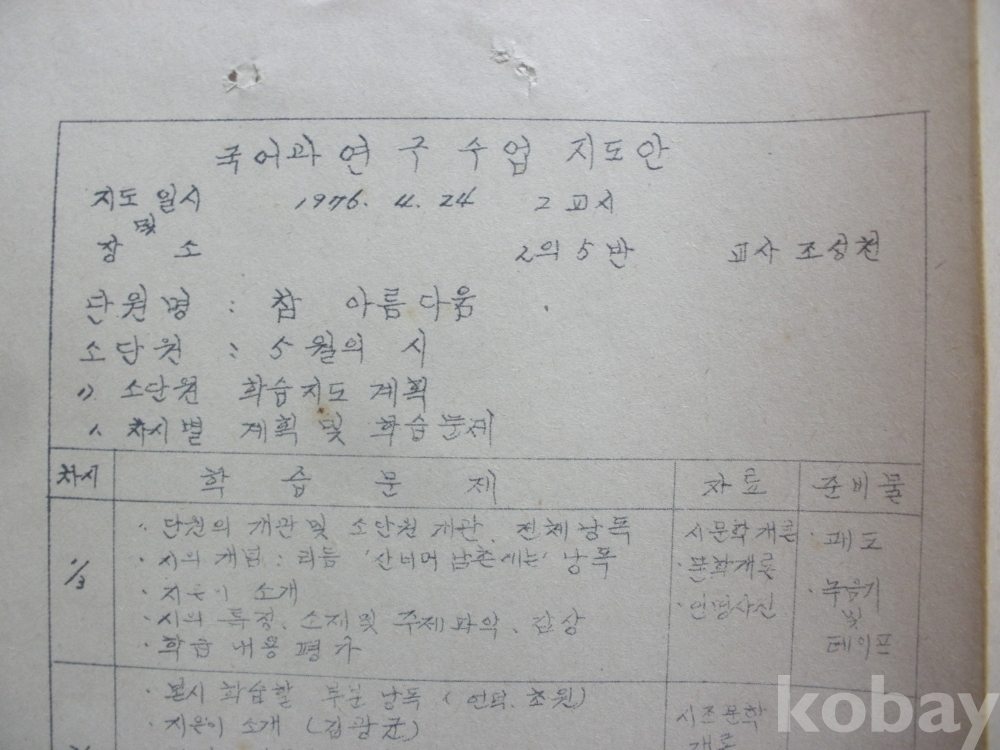 국어과 연구 수업 지도안
지도 일시 1976. 4. 24 2 교시
및
장 소 2의 5 반 교사 조성천
단원명 : 참 아름다움
소단원 : 5월의 시
1). 소단원 학습지도 계획
1. 차시별 계획 및 학습문제
차시 학 습 문 제 자료 준비물
1/3
· 단원의 개관 및 소단원 개관. 전체 낭독
· 시의 개념 : 리듬 '산너머 남촌에는' 낭독
· 지은이 소개
· 시의 특징. 소재 및 주제 파악. 감상
· 학습 내용 평가
시문학개론
· 문학개론
· 인명사전
· 괘도
· 녹음기
및
테이프
· 본시 학습할 부분 낭독 (언덕. 초원)
· 지은이 소개 (김광균)
시조문학
개론
kobay